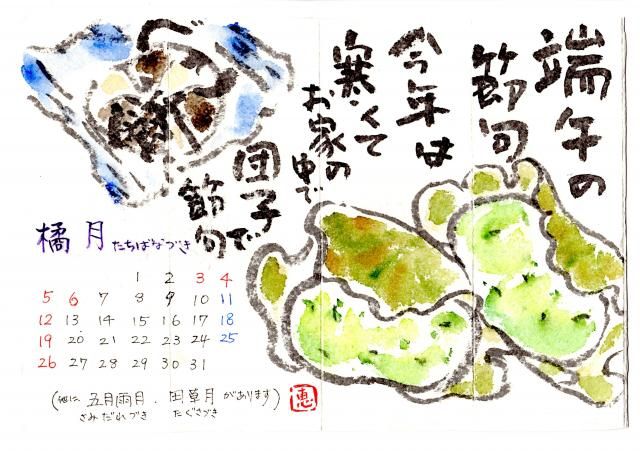 端午の
節句
今年は
寒くて
お家の
中で
団子で
節句
橘月 たちばなづき
1 2 3 4
5 6 7 8 9 10 11
12 13 14 15 16 17 18
19 20 21 22 23 24 25
26 27 28 29 30 31
(他に 五月雨月・田草月 があります)
さみだれづき たぐさづき
恵